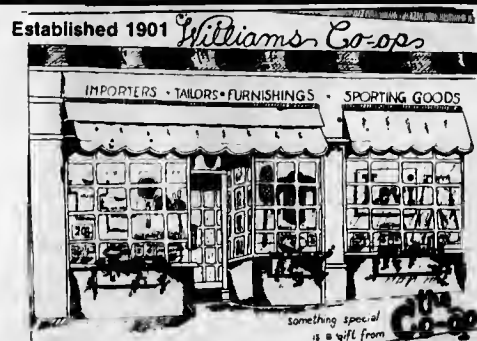 Established 1901 Williams Co-op
IMPORTERS • TAILORS • FURNISHINGS • SPORTING GOODS
something special
is a gift from the Co-op